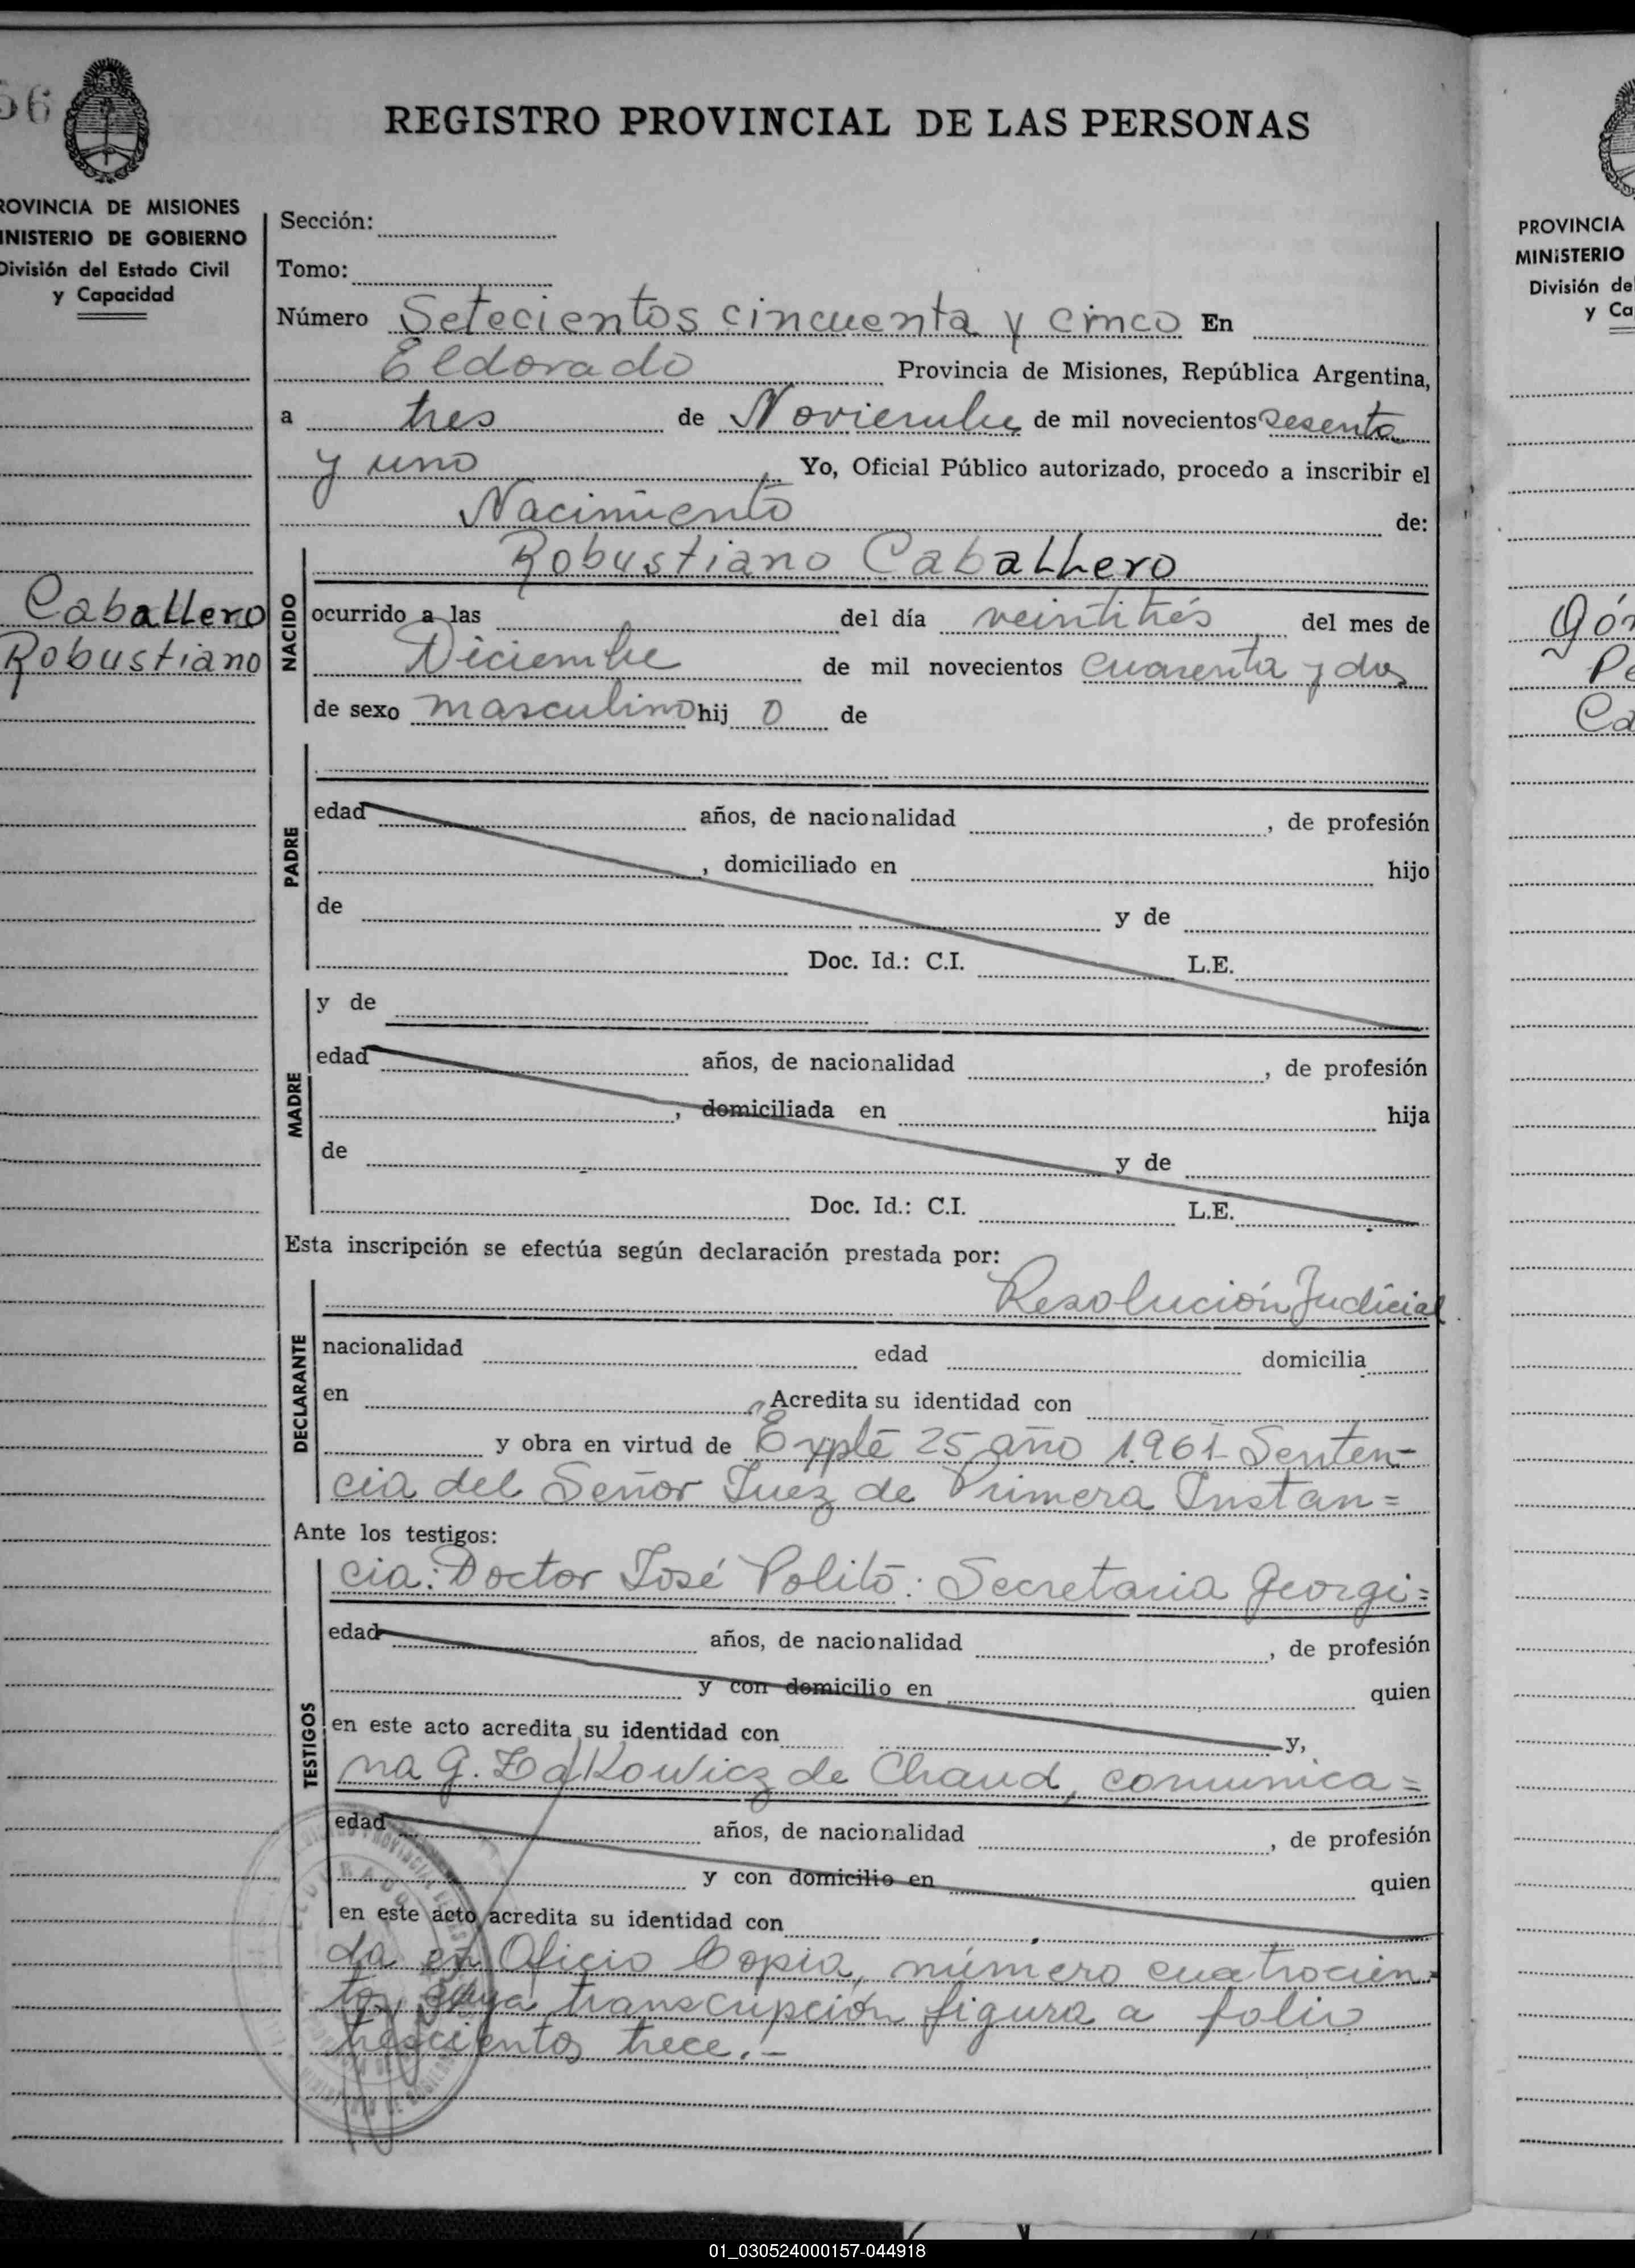 56
REGISTRO PROVINCIAL DE LAS PERSONAS
ROVINCIA DE MISIONES
INISTERIO DE GOBIERNO
División del Estado Civil
y Capacidad
Sección:
Tomo:
Número Setecientos cincuenta y cinco En
Eldorado Provincia de Misiones, República Argentina,
a tres de Noviembre de mil novecientos sesenta
y uno, Yo, Oficial Público autorizado, procedo a inscribir el
Nacimiento de:
Robustiano Caballero
Caballero
Robustiano
NACIDO
ocurrido a las del día veintitrés del mes de
Diciembre de mil novecientos cuarenta y dos
de sexo masculino hij o de
PADRE
edad años, de nacionalidad , de profesión
, domiciliado en hijo
de y de
Doc. Id.: C.I. L.E.
MADRE
y de
edad años, de nacionalidad , de profesión
, domiciliada en hija
de y de
Doc. Id.: C.I. L.E.
Esta inscripción se efectúa según declaración prestada por:
DECLARANTE
Resolución Judicial
nacionalidad edad domicilia
en Acredita su identidad con
y obra en virtud de Expte 25 año 1.961 Senten-
cia del Señor Juez de Primera Instan=
Ante los testigos:
TESTIGOS
cia: Doctor José Polito: Secretaria Georgi=
edad años, de nacionalidad , de profesión
y con domicilio en quien
en este acto acredita su identidad con y,
na G. de Chaud, comunica=
edad años, de nacionalidad , de profesión
y con domicilio en quien
en este acto acredita su identidad con
da en Oficio Copia, número cuatrocien-
tos cuya transcripción figura a folio
trescientos trece.-
PROVINCIA
MINISTERIO
División de
y Ca
Gó
Pe
Ca
01_030524000157-044918